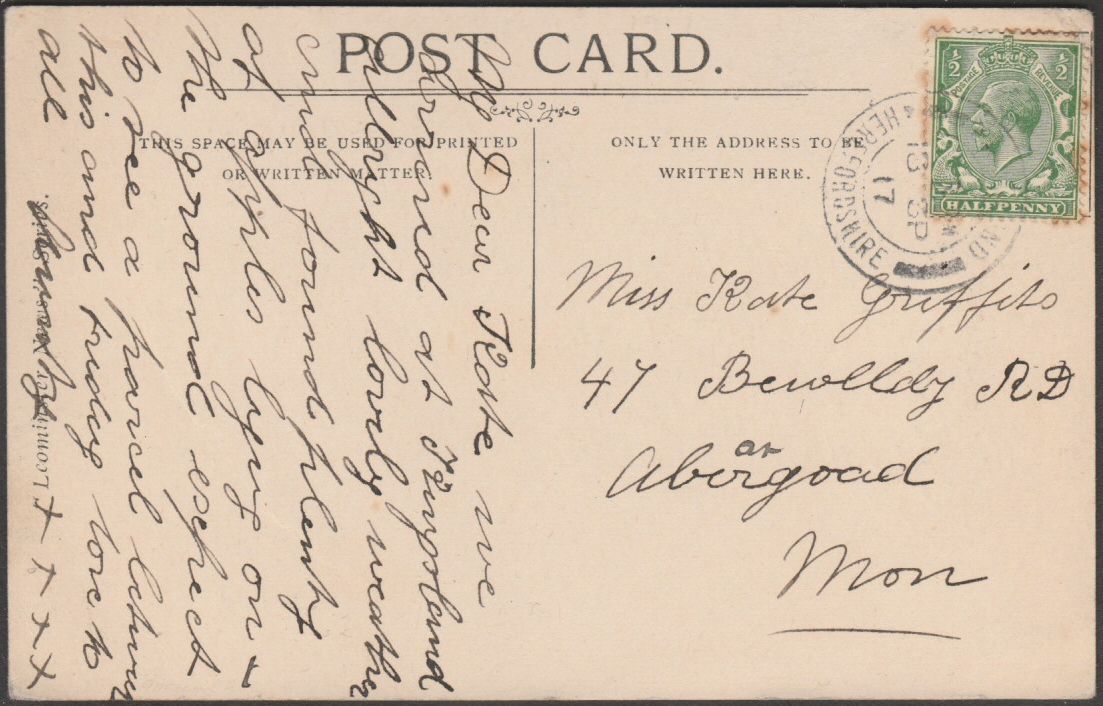 POST CARD.
THIS SPACE MAY BE USED FOR PRINTED
OR WRITTEN MATTER.
ONLY THE ADDRESS TO BE
WRITTEN HERE.
½ ½
POSTAGE REVENUE
HALFPENNY
HEREFORDSHIRE
13 SP
17
My Dear Kate we
arrived at Kingsland
allright lovly weather
and found plenty
of apples lying on
the ground expect
to see a parcel between
this and friday love to
all
x x x x
Miss Kate Griffits
47 Bewlldy RD
ar
Abirgoad
Mon
Leominster